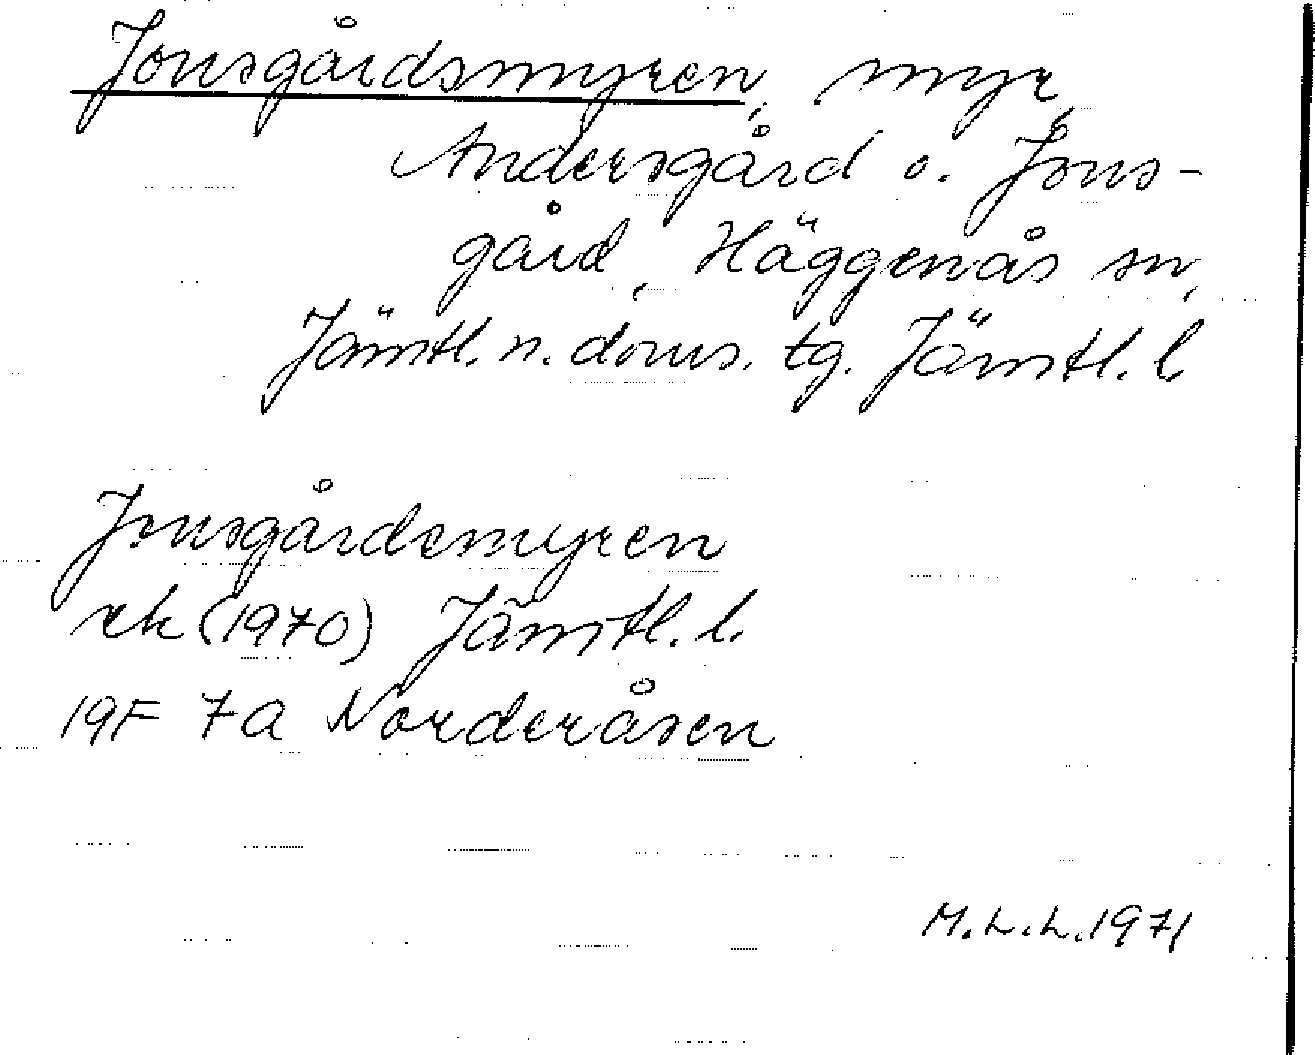 Jonsgårdsmyren, myr,
Andersgård o. Jons-
gård, Häggenås sn,
Jämtl. n. doms. tg. Jämtl. l.
Jonsgårdsmyren
rek (1970) Jämtl. l.
19F 7a Norderåsen
M.L.L. 1971